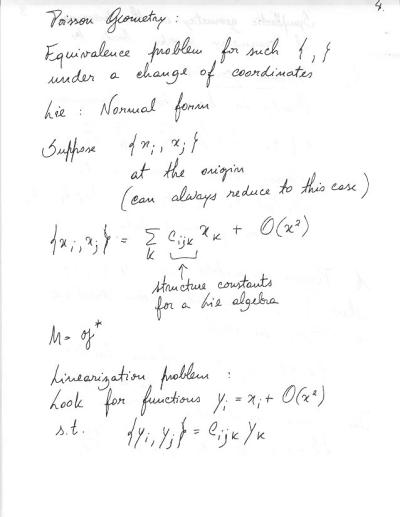 4.
Poisson Geometry :
Equivalence problem for such { , }
under a change of coordinates
Lie : Normal form
Suppose {x_i, x_j}
at the origin
(can always reduce to this case)
{x_i, x_j} = Σ_k c_{ijk} x_k + O(x²)
↑
structure constants
for a Lie algebra
M = 𝔤*
Linearization problem :
Look for functions y_i = x_i + O(x²)
s.t. {y_i, y_j} = c_{ijk} y_k